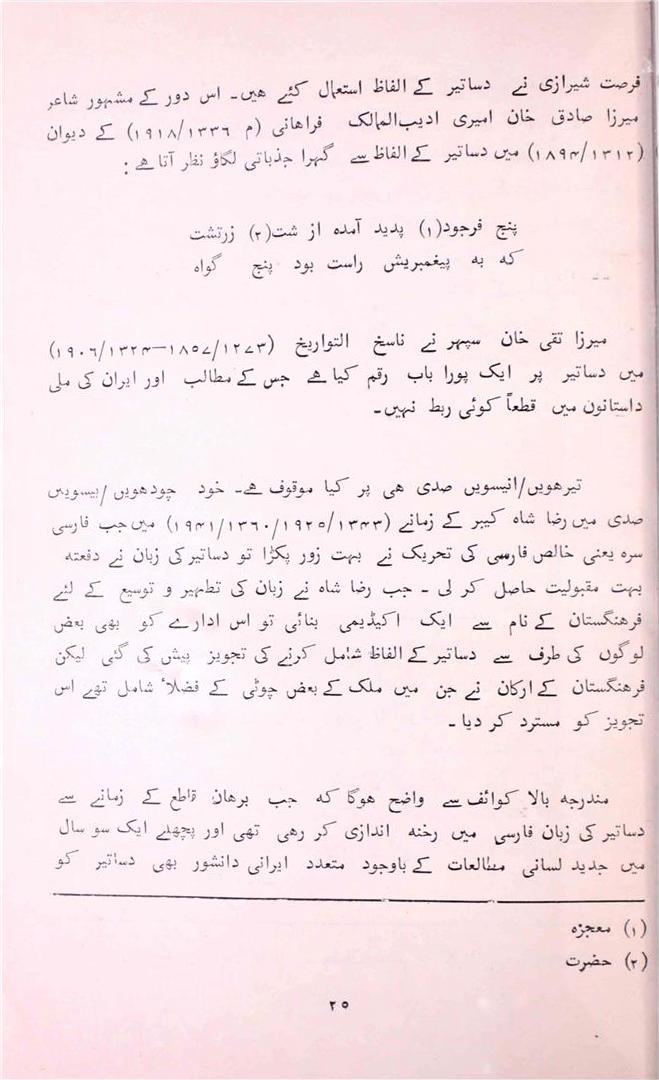 فرصت شیرازی نے دساتیر کے الفاظ استعمال کئے هیں۔ اس دور کے مشہور شاعر
میرزا صادق خان امیری ادیب‌الممالک فراهانی (م ۱۳۳۶/۱۹۱۸) کے دیوان
(۱۳۱۲/۱۸۹۴) میں دساتیر کے الفاظ سے گہرا جذباتی لگاؤ نظر آتا هے :
پنج فرجود(۱) پدید آمده از شت(۲) زرتشت
که به پیغمبریش راست بود پنج گواه
میرزا تقی خان سپہر نے ناسخ التواریخ (۱۲۷۳/۱۸۵۷—۱۳۲۴/۱۹۰۶)
میں دساتیر پر ایک پورا باب رقم کیا هے جس کے مطالب اور ایران کی ملی
داستانون میں قطعاً کوئی ربط نہیں۔
تیرهویں/انیسویں صدی هی پر کیا موقوف هے۔ خود چودهویں/بیسویں
صدی میں رضا شاه کبیر کے زمانے (۱۳۴۳/۱۹۲۵/۱۳۶۰/۱۹۴۱) میں جب فارسی
سره یعنی خالص فارسی کی تحریک نے بہت زور پکڑا تو دساتیر کی زبان نے دفعته
بہت مقبولیت حاصل کر لی ۔ جب رضا شاه نے زبان کی تطہیر و توسیع کے لئے
فرهنگستان کے نام سے ایک اکیڈیمی بنائی تو اس ادارے کو بھی بعض
لوگوں کی طرف سے دساتیر کے الفاظ شامل کرنے کی تجویز پیش کی گئی لیکن
فرهنگستان کے ارکان نے جن میں ملک کے بعض چوٹی کے فضلاٴ شامل تھے اس
تجویز کو مسترد کر دیا ۔
مندرجه بالا کوائف سے واضح هوگا که جب برهان قاطع کے زمانے سے
دساتیر کی زبان فارسی میں رخنه اندازی کر رهی تھی اور پچھلے ایک سو سال
میں جدید لسانی مطالعات کے باوجود متعدد ایرانی دانشور بھی دساتیر کو
(۱) معجزه
(۲) حضرت
۲۵